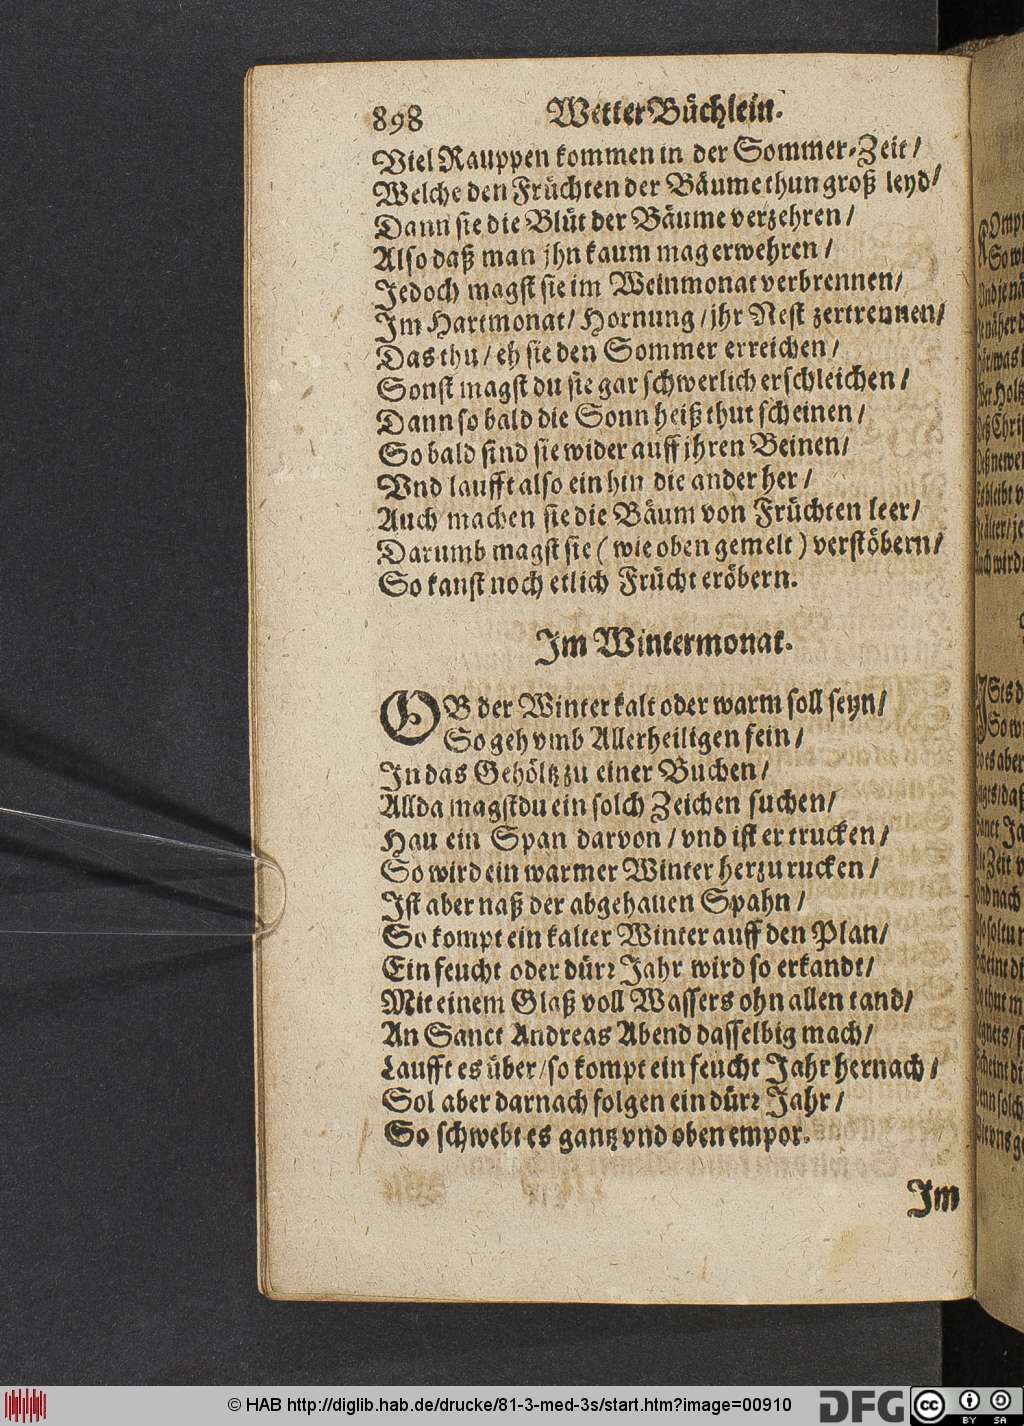 898 WetterBüchlein.
Viel Rauppen kommen in der Sommer-Zeit /
Welche den Früchten der Bäume thun groß leyd /
Dann sie die Blüt der Bäume verzehren /
Also daß man jhn kaum mag erwehren /
Jedoch magst sie im Weinmonat verbrennen /
Im Hartmonat / Hornung / jhr Nest zertrennen /
Das thu / eh sie den Sommer erreichen /
Sonst magst du sie gar schwerlich erschleichen /
Dann so bald die Sonn heiß thut scheinen /
So bald sind sie wider auff jhren Beinen /
Vnd laufft also ein hin die ander her /
Auch machen sie die Bäum von Früchten leer /
Darumb magst sie ( wie oben gemelt ) verstöbern /
So kanst noch etlich Frücht eröbern.
Im Wintermonat.
OB der Winter kalt oder warm soll seyn /
So geh vmb Allerheiligen fein /
In das Gehöltz zu einer Buchen /
Allda magst du ein solch Zeichen suchen /
Hau ein Span darvon / vnd ist er trucken /
So wird ein warmer Winter herzu rucken /
Ist aber naß der abgehauen Spahn /
So kompt ein kalter Winter auff den Plan /
Ein feucht oder dürr Jahr wird so erkandt /
Mit einem Glaß voll Wassers ohn allen tand /
An Sanct Andreas Abend dasselbig mach /
Laufft es über / so kompt ein feucht Jahr hernach /
Sol aber darnach folgen ein dürr Jahr /
So schwebt es gantz vnd oben empor.
Im
© HAB http://diglib.hab.de/drucke/81-3-med-3s/start.htm?image=00910
DFG
cc
BY SA